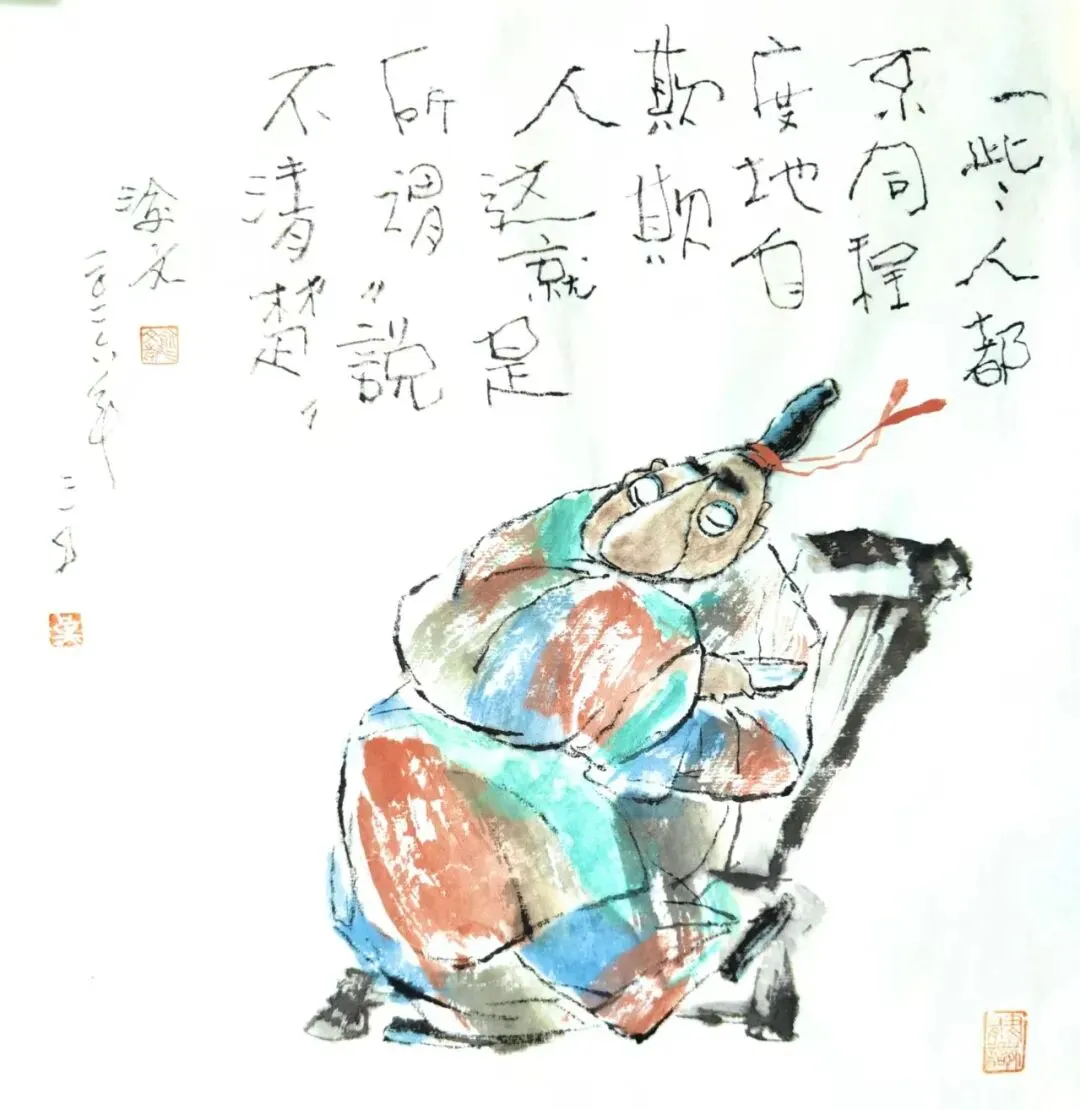 一些人都
不同程
度地自
欺欺
人这就是
所谓“説
不清楚”
二〇一六年